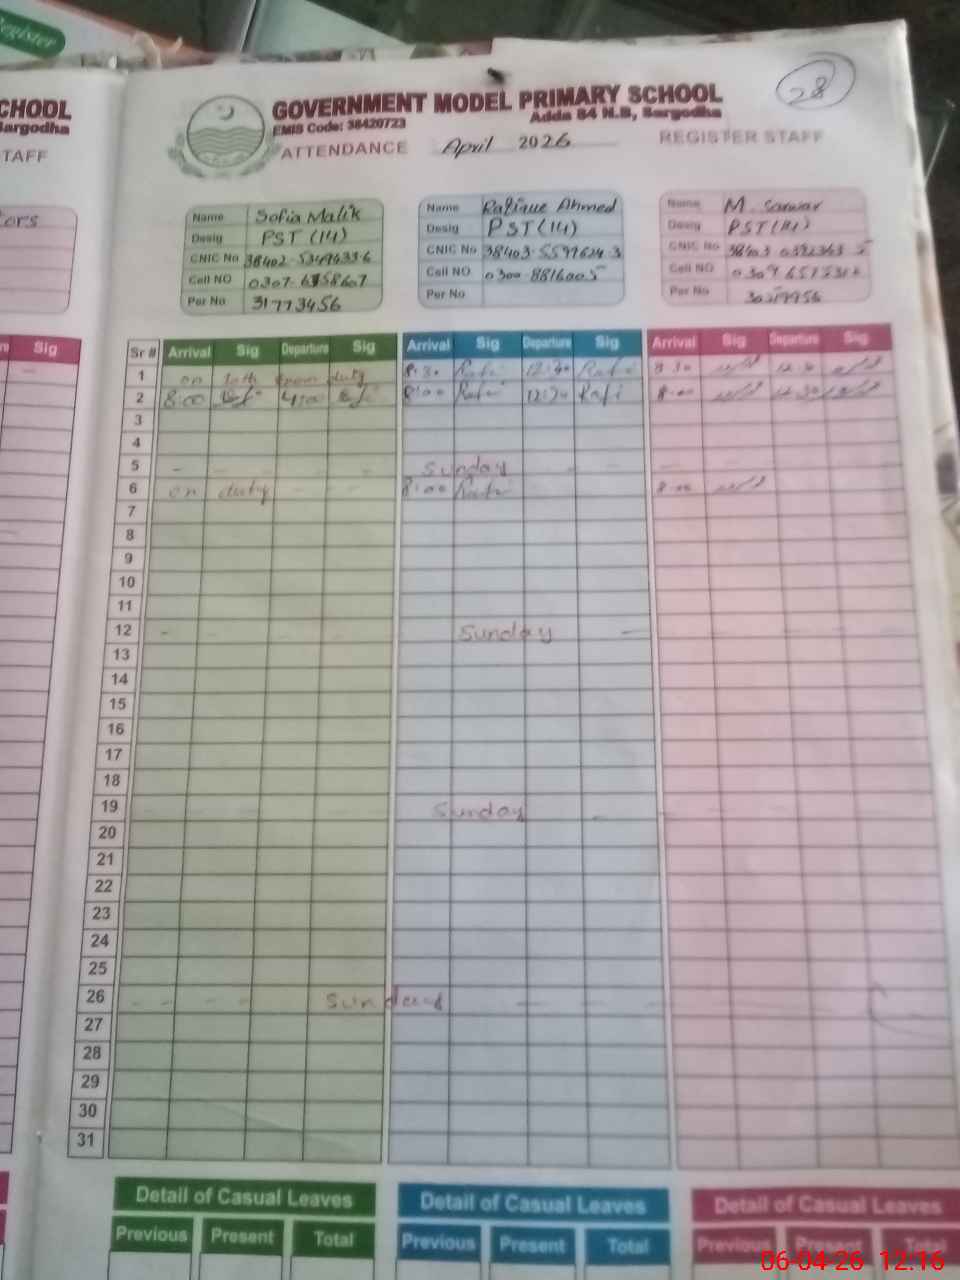 Register
CHOOL
Sargodha
TAFF
tors
Sig
28
GOVERNMENT MODEL PRIMARY SCHOOL
Adda 84 N.B, Sargodha
EMIS Code: 38420723
ATTENDANCE April 2026 REGISTER STAFF
Name Sofia Malik
Desig PST (14)
CNIC No
Cell NO
Per No 31773456
Name Rafique Ahmed
Desig PST (14)
CNIC No
Cell NO 0300-8816005
Per No
Name M. Sarwar
Desig PST (14)
CNIC No
Cell NO
Per No
Sr # Arrival Sig Departure Sig Arrival Sig Departure Sig Arrival Sig Departure Sig
1 on from duty 8:30 Rafi 12:30 Rafi 8:30
2 8:00 8:00 Rafi 12:30 Rafi 8:00 12:30
3
4
5 - - - - Sunday - - - - - -
6 on duty - - 8:00 Rafi 8:00
7
8
9
10
11
12 - - - - Sunday - - - -
13
14
15
16
17
18
19 - - - - Sunday - - - -
20
21
22
23
24
25
26 - - - - Sunday - - - -
27
28
29
30
31
Detail of Casual Leaves Detail of Casual Leaves Detail of Casual Leaves
Previous Present Total Previous Present Total Previous Present Total
06-04-26 12:16